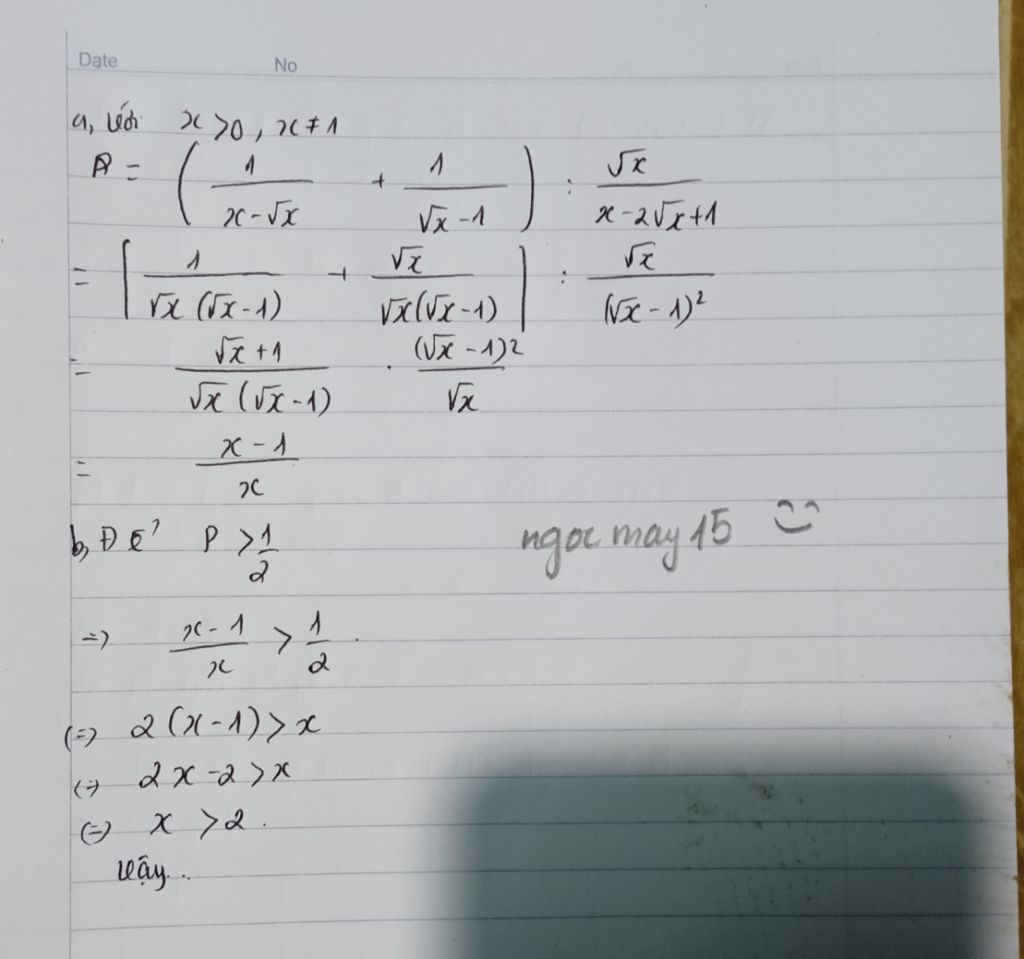 Date No
a, Với x > 0, x ≠ 1
P = ( 1/(x - √x) + 1/(√x - 1) ) : √x/(x - 2√x + 1)
= [ 1/(√x (√x - 1)) + √x/(√x (√x - 1)) ] : √x/(√x - 1)²
= (√x + 1)/(√x (√x - 1)) . (√x - 1)²/√x
= (x - 1)/x
b, Để P > 1/2
ngoc may 15
=> (x - 1)/x > 1/2 .
(=) 2(x - 1) > x
(=) 2x - 2 > x
(=) x > 2 .
Vậy...